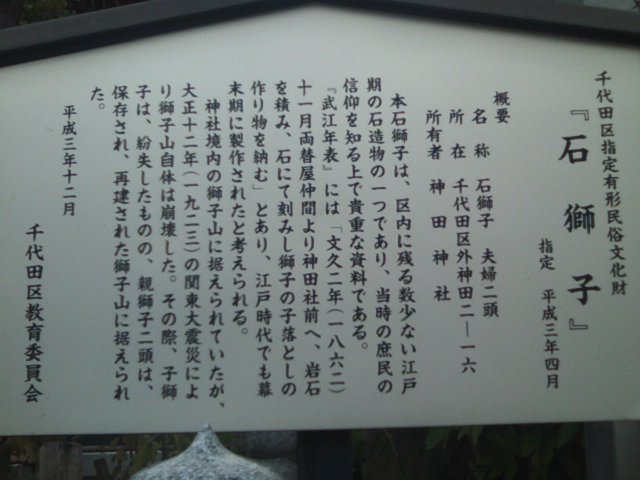 千代田区指定有形民俗文化財
『石獅子』
指定 平成三年四月
概要
名称 石獅子 夫婦二頭
所在 千代田区外神田二―一六
所有者 神田神社
本石獅子は、区内に残る数少ない江戸
期の石造物の一つであり、当時の庶民の
信仰を知る上で貴重な資料である。
『武江年表』には「文久二年(一八六二)
十一月両替屋仲間より神田社前へ、岩石
を積み、石にて刻みし獅子の子落としの
作り物を納む」とあり、江戸時代でも幕
末期に製作されたと考えられる。
神社境内の獅子山に据えられていたが、
大正十二年(一九二三)の関東大震災によ
り獅子山自体は崩壊した。その際、子獅
子は、紛失したものの、親獅子二頭は、
保存され、再建された獅子山に据えられ
た。
平成三年十二月
千代田区教育委員会